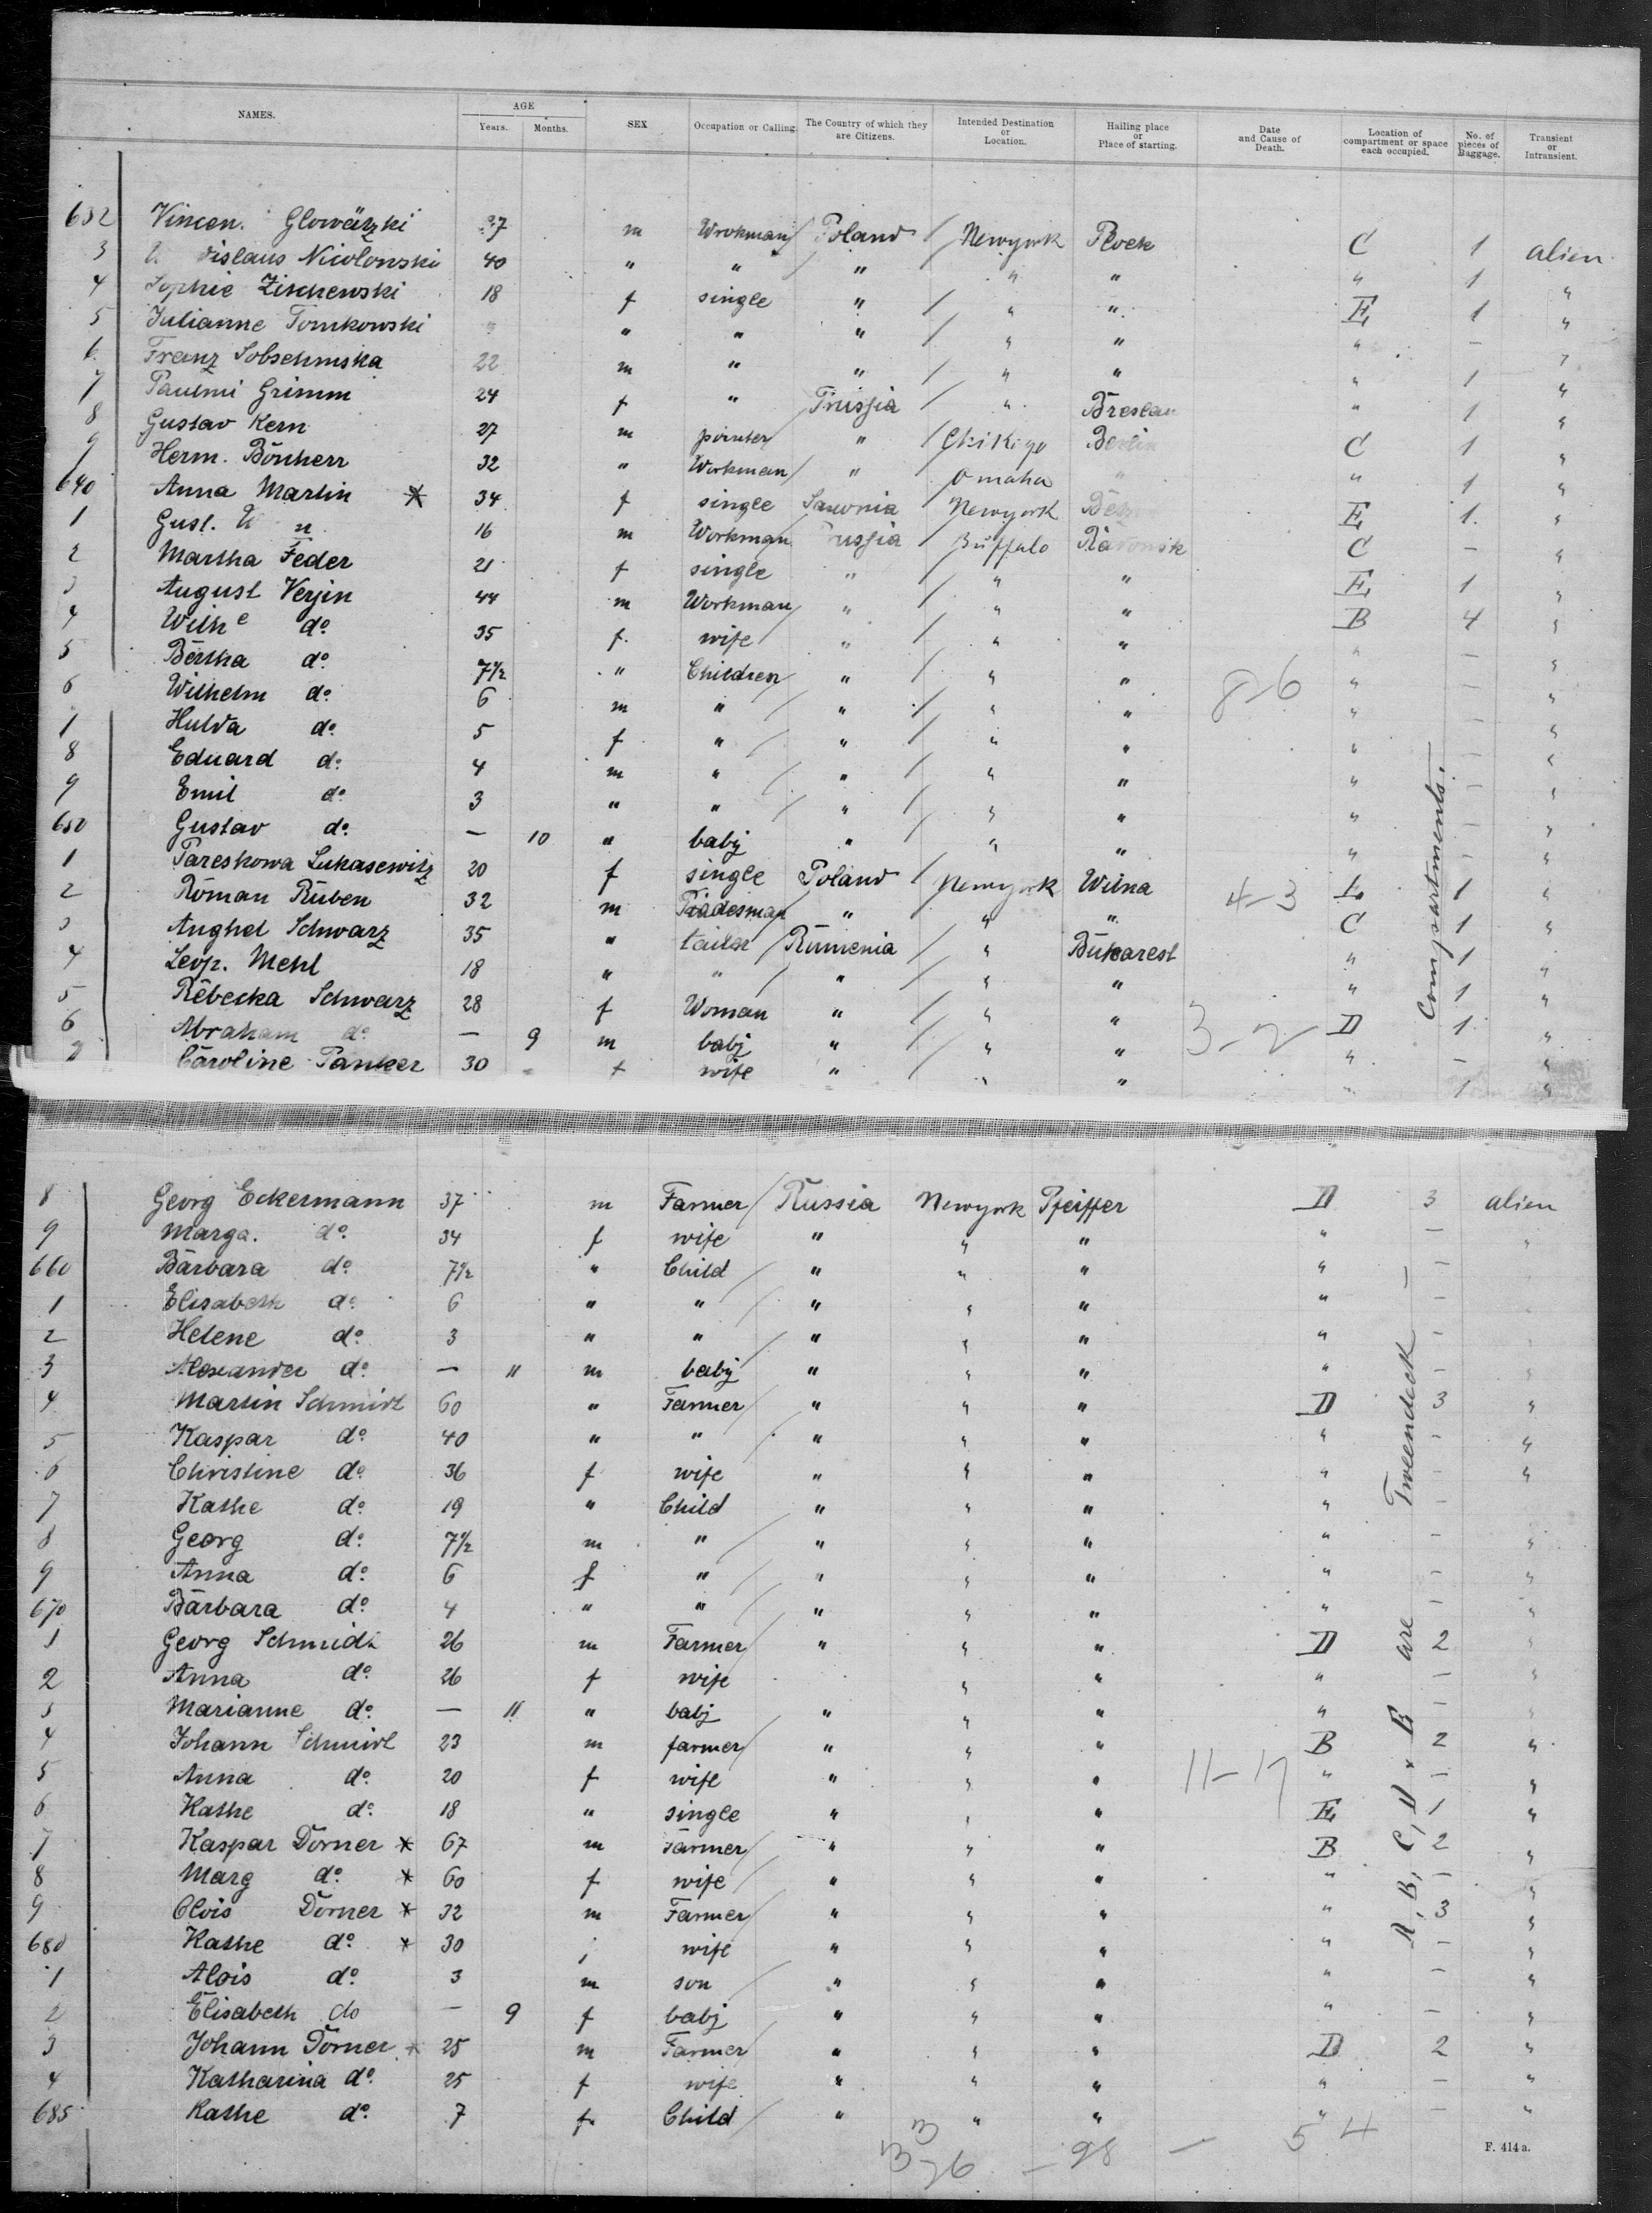 NAMES. AGE Years. Months. SEX Occupation or Calling. The Country of which they are Citizens. Intended Destination or Location. Hailing place or Place of starting. Date and Cause of Death. Location of compartment or space each occupied. No. of pieces of Baggage. Transient or Intransient.
632 Vincen. Glowärzki 37 m Workman Poland Newyork Plock C 1 alien
3 dislaus Nicolonski 40 " " " " " " 1 "
4 Sophie Zischewski 18 f single " " " E 1 "
5 Julianne Tomkowski " " " " " " " - "
6 Franz Sobschinska 22 m " " " " " 1 "
7 Paulmi Grimm 24 f " Prussia " Breslau " 1 "
8 Gustav Kern 27 m painter " Chikigo Berlin C 1 "
9 Herm. Bönherr 32 " Workman " Omaha " " 1 "
640 Anna Martin * 34 f single Saxonia Newyork E 1 "
1 Gust. 16 m Workman Prussia Büffalo Räwonsk C - "
2 Martha Feder 21 f single " " " E 1 "
3 August Verjin 44 m Workman " " " B 4 "
4 Wilhe do 35 f wife " " " " - "
5 Bertha do 7 1/2 " Children " " " " - "
6 Wilhelm do 6 m " " " " 8-6 " - "
7 Hulda do 5 f " " " " " - "
8 Eduard do 4 m " " " " " - "
9 Emil do 3 " " " " " " - "
650 Gustav do - 10 " baby " " " " - "
1 Pareskowa Lukasewitz 20 f single Poland Newyork Wilna 1 "
2 Roman Rüben 32 m Tradesman " " " 4-3 C 1 "
3 Anghel Schwarz 35 " tailor Rumenia " Bukarest " 1 "
4 Leop. Mehl 18 " " " " " " 1 "
5 Rebecka Schwarz 28 f Woman " " " D 1 "
6 Abraham do - 9 m baby " " " 3-2 " - "
7 Caroline Panker 30 f wife " " " " 1 "
Compartments.
8 Georg Eckermann 37 m Farmer Russia Newyork Pfeiffer D 3 alien
9 Marga. do 34 f wife " " " " - "
660 Bärbara do 7 1/2 " Child " " " " -
1 Elisabeth do 6 " " " " " " -
2 Helene do 3 " " " " " " -
3 Alexander do - 11 m baby " " " " - "
4 Martin Schmidt 60 " Farmer " " " D 3 "
5 Kaspar do 40 " " " " " " - "
6 Christine do 36 f wife " " " " - "
7 Kathe do 19 " Child " " " " -
8 Georg do 7 1/2 m " " " " " - "
9 Anna do 6 f " " " " " - "
670 Bärbara do 4 " " " " " " - "
1 Georg Schmidt 26 m Farmer " " " D 2 "
2 Anna do 26 f wife " " " - "
3 Marianne do - 11 " baby " " " " - "
4 Johann Schmidt 23 m farmer " " " B 2 "
5 Anna do 20 f wife " " " 11-17 " - "
6 Kathe do 18 " single " " " E 1 "
7 Kaspar Dorner * 67 m farmer " " " B 2 "
8 Marg do * 60 f wife " " " " - "
9 Dorner * 32 m Farmer " " " " 3 "
680 Kathe do * 30 f wife " " " " - "
1 Alois do 3 m son " " " " - "
2 Elisabeth do - 9 f baby " " " " - "
3 Johann Dorner * 25 m Farmer " " " D 2 "
4 Katharina do 25 f wife " " " " - "
685 Kathe do 7 f Child " " " " - "
A, B, C, D & E are Tweendeck -
3
336 - 98 - 54
F. 414 a.